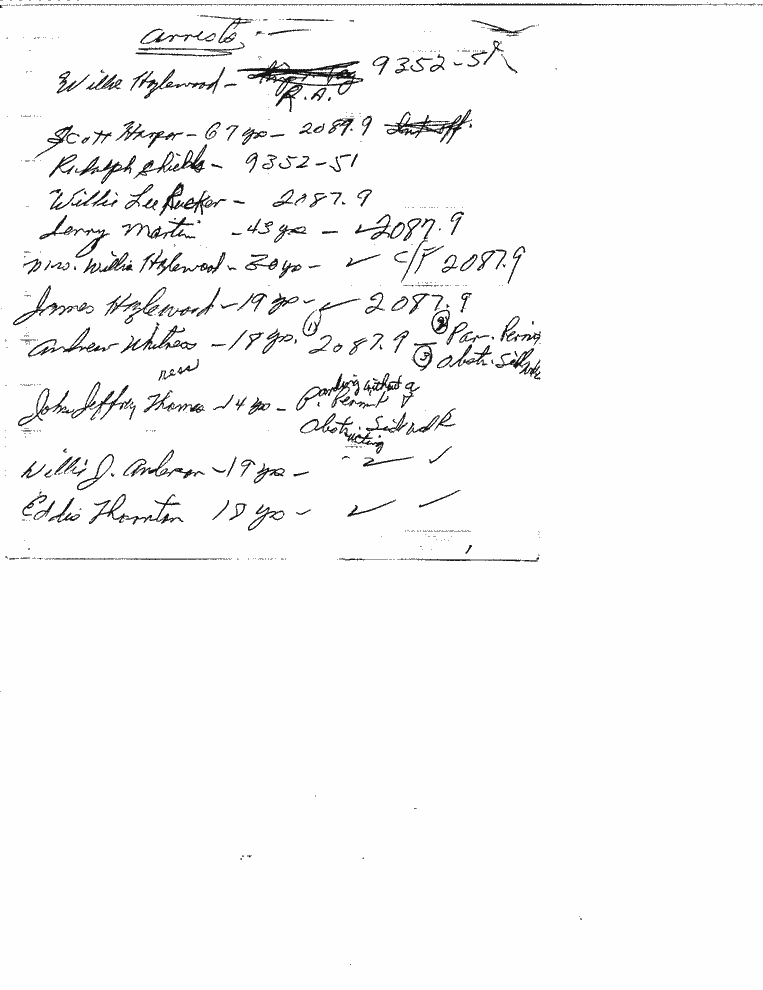 Arrests
Willie Hazlewood - R.A. 9352-51
Scott Harper - 67 yo - 2089.9
Rudolph Shields - 9352-51
Willie Lee Rucker - 2087.9
Jerry Martin - 43 yo - ✓ 2087.9
Mrs. Willia Hazlewood - 30 yo - ✓ C/T 2087.9
James Hazlewood - 19 yo - ✓ 2087.9
Andrew Whitness - 18 yo. ① 2087.9 - ② Par. Perm
ness ③ Obstr. Sidewalk
John Jeffrey Thomas - 14 yo - Parading without a
P. Permit
Obstructing Sidewalk
Willie J. Anderson - 19 yo - ✓ ✓
Eddie Thornton 18 yo - ✓ ✓
1